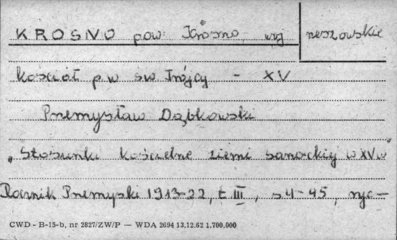 KROSNO pow. Krosno, woj. rzeszowskie
Kościół p.w. św. Trójcy - XV
Przemysław Dąbkowski
"Stosunki kościelne ziemi sanockiej w XV w"
Rocznik Przemyski 1913-22, t. III, s. 4-45, ryc-
CWD - B-15-b, nr 2827/ZW/P — WDA 2694 13.12.62 1.700.000